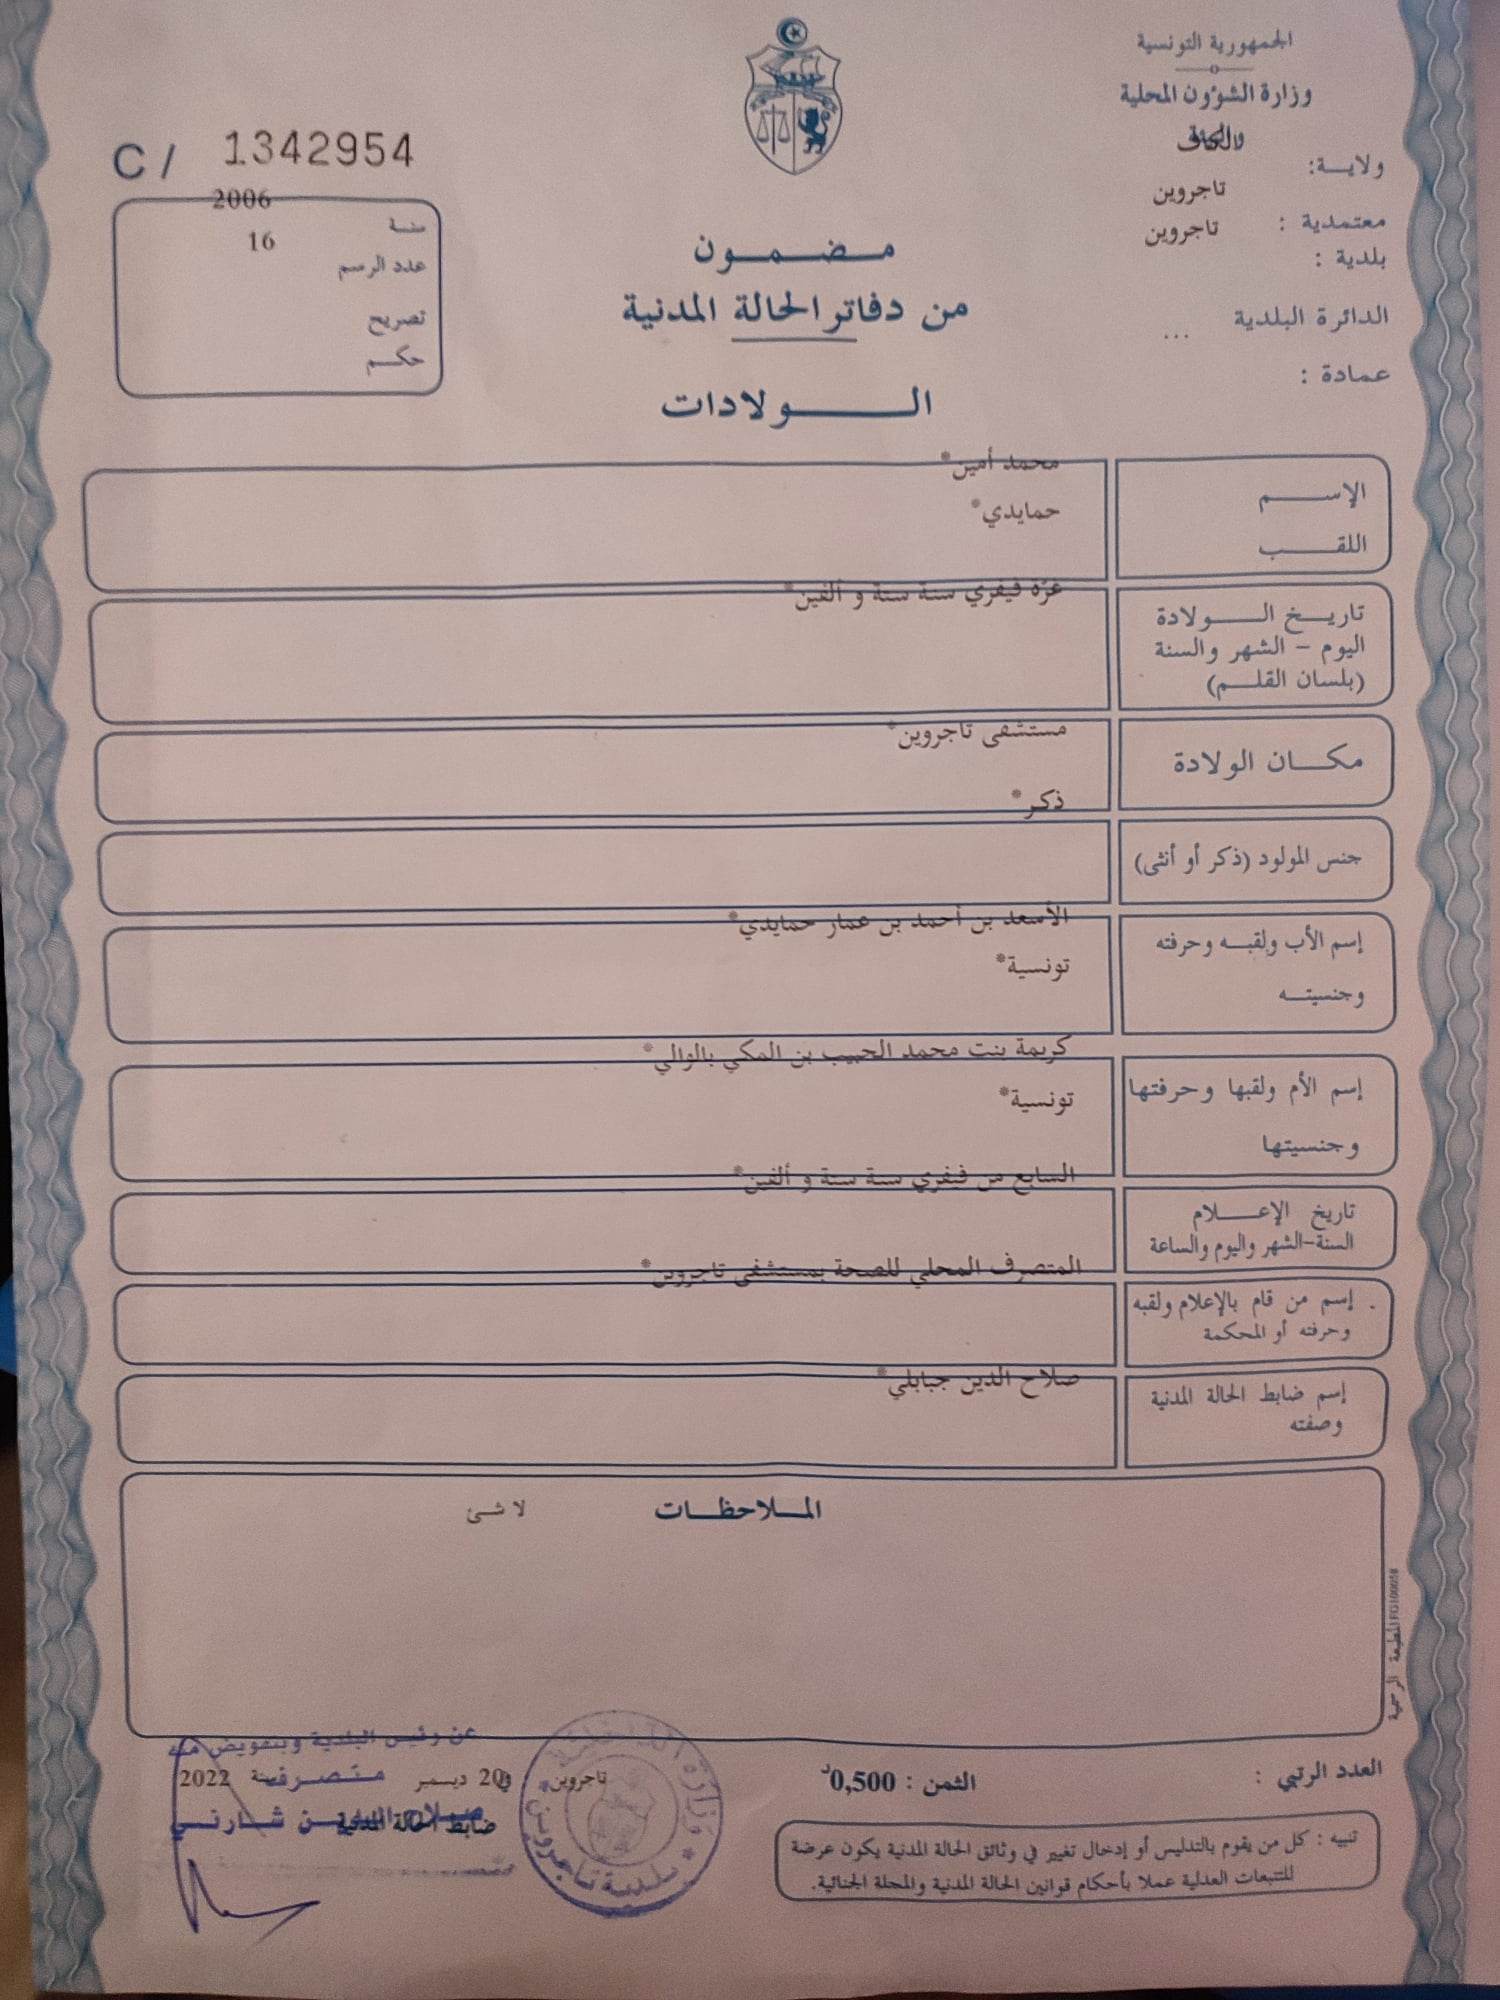 الجمهورية التونسية
وزارة الشؤون المحلية
ولايـــة: الكاف
معتمدية : تاجروين
بلدية : تاجروين
الدائرة البلدية ...
عمادة :
C / 1342954
سنـة 2006
عدد الرسم 16
تصريح
حكـم
مـضـمـون
من دفاتر الحالة المدنية
الـــولادات
الإســـم محمد أمين*
اللقـــب حمايدي*
تاريـخ الـــولادة غرّة فيفري سنة ستة و ألفين*
اليوم - الشهر والسنة
(بلسان القلـم)
مكـــان الولادة مستشفى تاجروين*
جنس المولود (ذكر أو أنثى) ذكر*
إسم الأب ولقبـه وحرفته الأسعد بن أحمد بن عمار حمايدي*
وجنسيتـه تونسية*
إسم الأم ولقبها وحرفتها كريمة بنت محمد الحبيب بن المكي بالوالي*
وجنسيتها تونسية*
تاريخ الإعـــلام السابع من فيفري سنة ستة و ألفين*
السنة-الشهر واليوم والساعة
إسم من قام بالإعلام ولقبه المتصرف المحلي للصحة بمستشفى تاجروين*
وحرفته أو المحكمة
إسم ضابط الحالة المدنية صلاح الدين جبابلي*
وصفته
المـــلاحظـــات لا شئ
المطبعة الرسمية
العدد الرتبي :
الثمن : 0,500د
تنبيه : كل من يقوم بالتدليس أو إدخال تغيير في وثائق الحالة المدنية يكون عرضة
للتتبعات العدلية عملا بأحكام قوانين الحالة المدنية والمجلة الجنائية.
عن رئيس البلدية وبتفويض منه
تاجروين في 20 ديسمبر سنة 2022
متصرف
ضابط الحالة المدنية
بلدية تاجروين